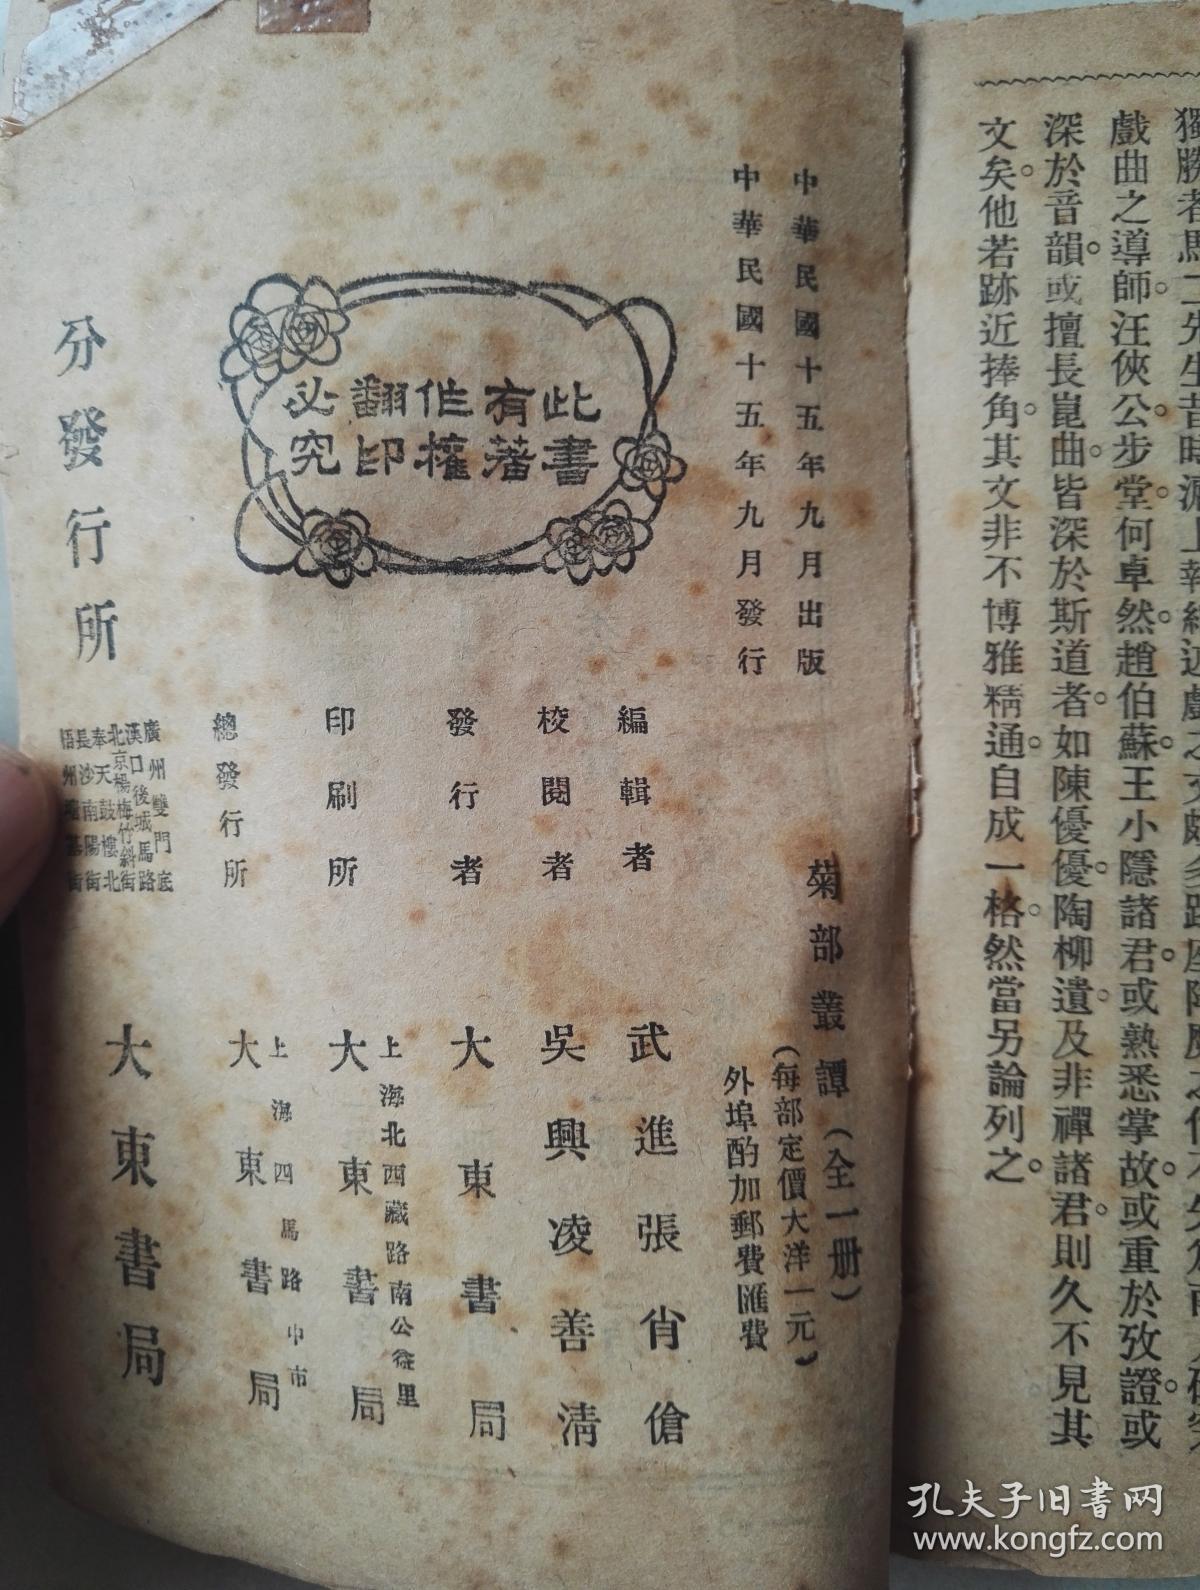 戲曲之導師汪俠公步堂何卓然趙伯蘇王小隱諸君或熟悉掌故或重於攷證或
深於音韻或擅長崑曲皆深於斯道者如陳優優陶柳遺及非禪諸君則久不見其
文矣他若跡近捧角其文非不博雅精通自成一格然當另論列之
中華民國十五年九月出版
中華民國十五年九月發行
菊部叢譚（全一册）
（每部定價大洋一元）
外埠酌加郵費匯費
此書有著作權翻印必究
編輯者 武進張肖傖
校閱者 吳興凌善清
發行者 大東書局
印刷所 上海北西藏路南公益里 大東書局
總發行所 上海四馬路中市 大東書局
分發行所 大東書局
廣州雙門底
漢口後城馬路
北京楊梅竹斜街
奉天鼓樓北
長沙南陽街
孔夫子旧书网
www.kongfz.com